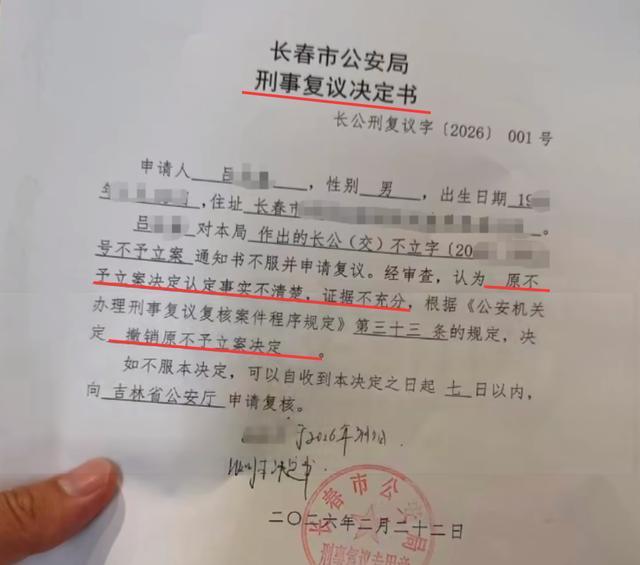 长春市公安局
刑事复议决定书
长公刑复议字〔2026〕001号
申请人 吕 ，性别 男 ，出生日期 19
年 ，住址 长春市 。
吕 对本局 作出的长公（交）不立字〔20
号不予立案 通知书不服并申请复议。经审查，认为 原不
予立案决定认定事实不清楚，证据不充分，根据《公安机关
办理刑事复议复核案件程序规定》第三十三 条的规定，决
定 撤销原不予立案决定 。
如不服本决定，可以自收到本决定之日起 七 日以内，
向 吉林省公安厅 申请复核。
于2026年
决定书
二〇二六年二月二十二日
长春市公安局
刑事复议专用章